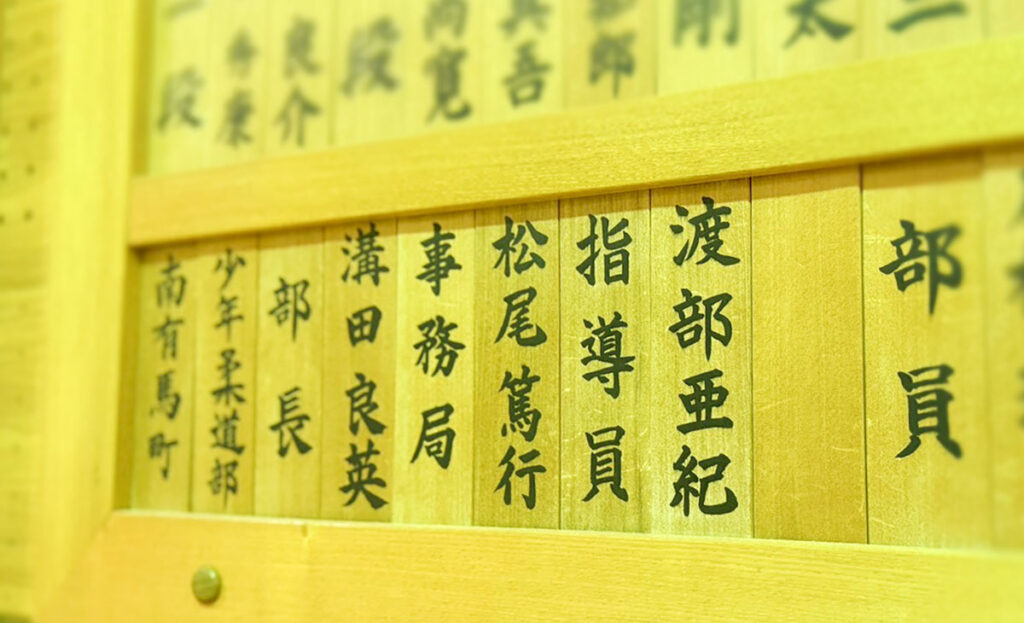 段
康
良介
段
尚寛
吾
郎
剛
太
南有馬町
少年柔道部
部長
溝田良英
事務局
松尾篤行
指導員
渡部亜紀
部員